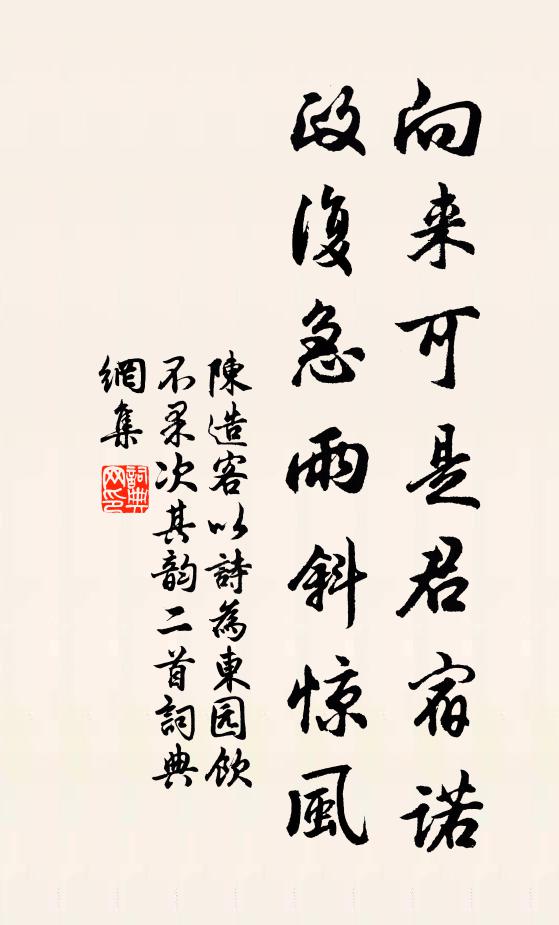 向来可是君宿诺
政復急雨斜惊風
陳造客以詩為東园飲
不果次其韵二首詞典
網集
詞典網印